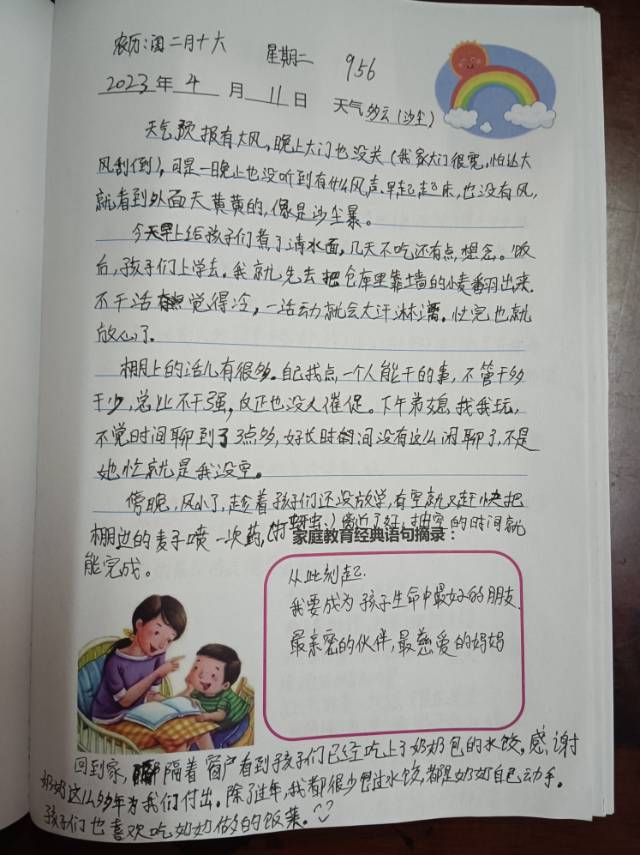 农历:闰二月十六 星期二 956
2023年4月11日 天气 多云(沙尘)
天气预报有大风,晚上大门也没关(我家大门很宽,怕让大
风刮倒),可是一晚上也没听到有什么风声.早起,起床,也没有风,
就看到外面天黄黄的,像是沙尘暴。
今天早上给孩子们煮了清水面,几天不吃还有点想念。饭
后,孩子们上学去。我就先去把仓库里靠墙的小麦翻出来.
不干活有点觉得冷,一活动就会大汗淋漓。忙完也就
放心了。
棚上的活儿有很多。自己找点一个人能干的事,不管干多
干少,总比不干强,反正也没人催促。下午弟媳找我玩,
不觉时间聊到了3点多,好长时间没有这么闲聊了,不是
她忙就是我没空。
傍晚,风小了,趁着孩子们还没放学,有空就又赶快把
棚边的麦子喷一次药,(打蚜虫)离近了好,抽空的时间就
能完成。
家庭教育经典语句摘录:
从此刻起.
我要成为孩子生命中最好的朋友.
最亲密的伙伴,最慈爱的妈妈
回到家,隔着窗户看到孩子们已经吃上了奶奶包的水饺,感谢
奶奶这么多年为我们付出。除了过年,我都很少包过水饺,都是奶奶自己动手。
孩子们也喜欢吃奶奶做的饭菜。